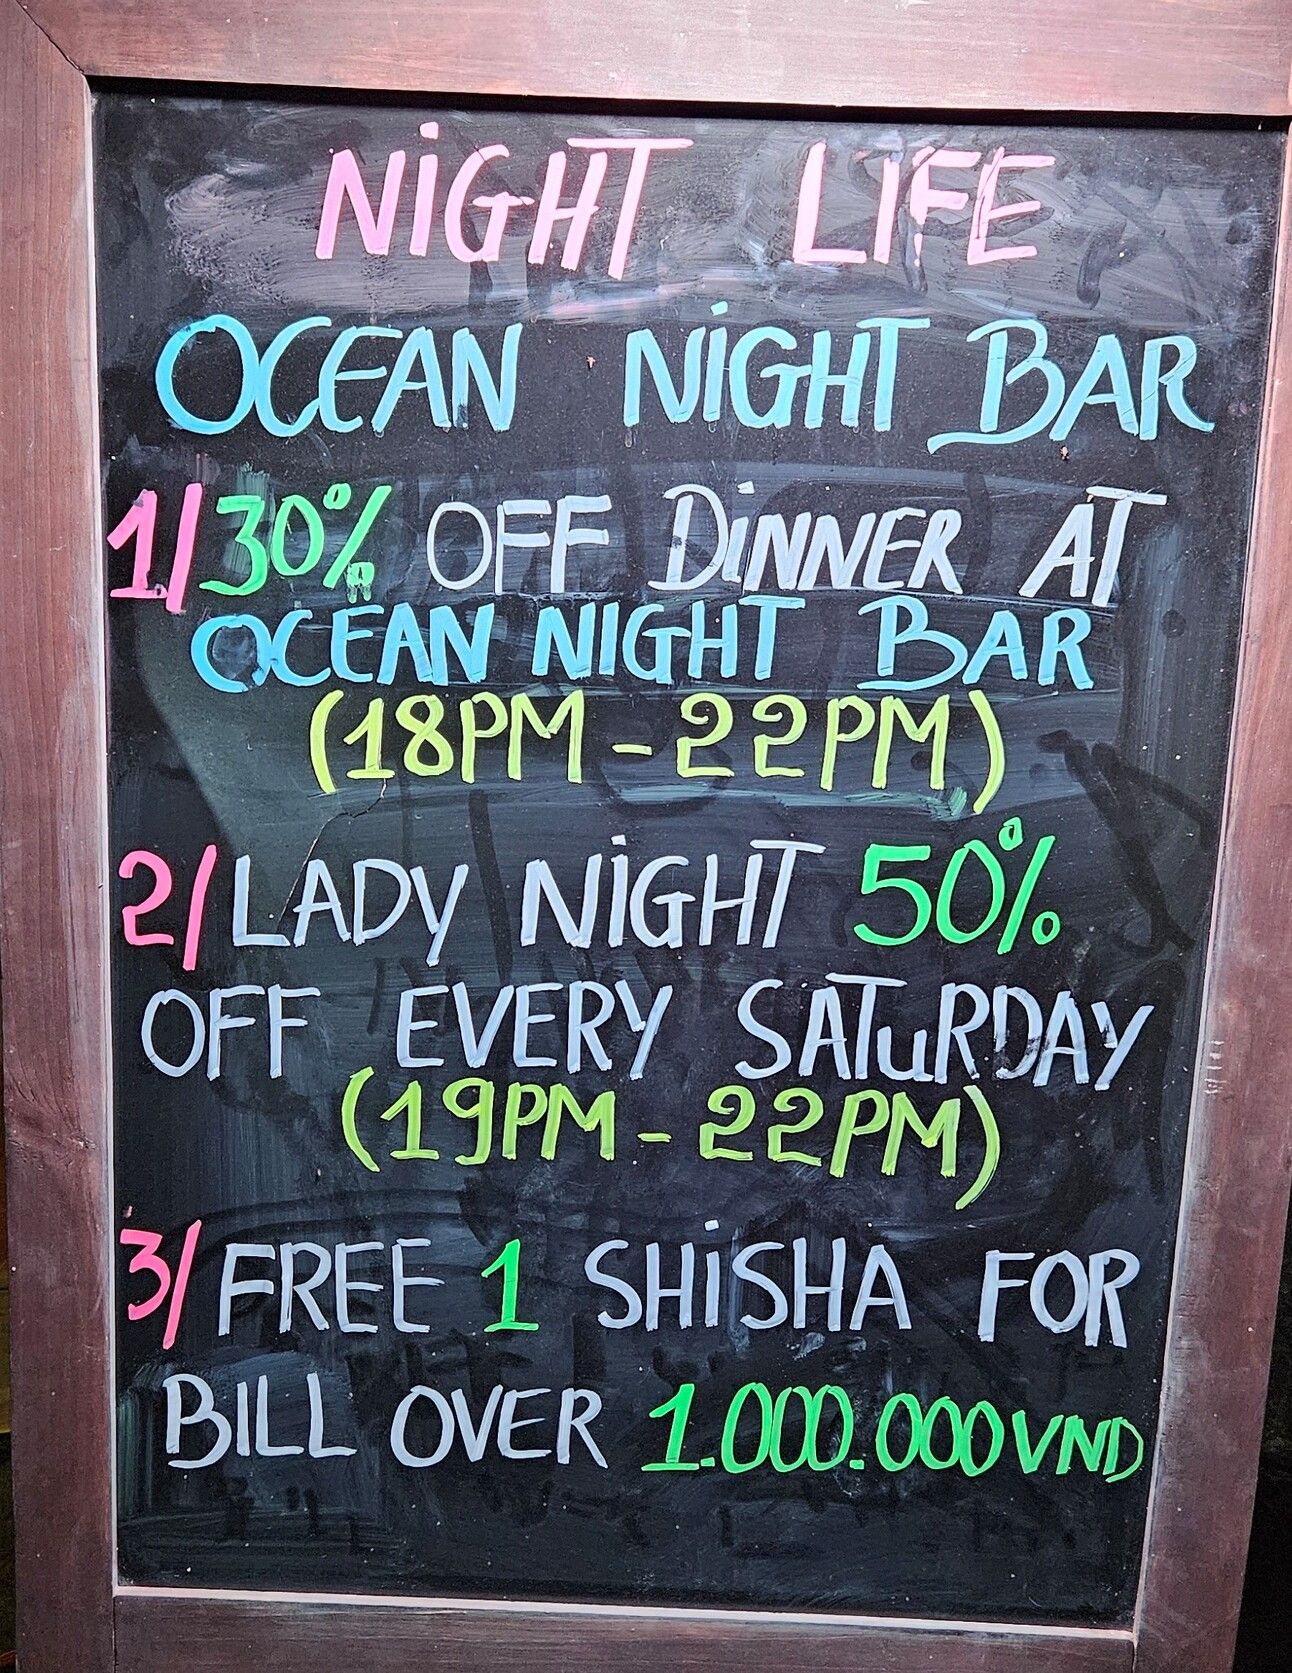 NiGHT LIFE
OCEAN NiGHT BAR
1/30% OFF DiNNER AT
OCEAN NIGHT BAR
(18PM - 22PM)
2/LADY NiGHT 50%
OFF EVERY SATuRDAY
(19PM - 22PM)
3/FREE 1 SHiSHA FOR
BILL OVER 1.000.000VND